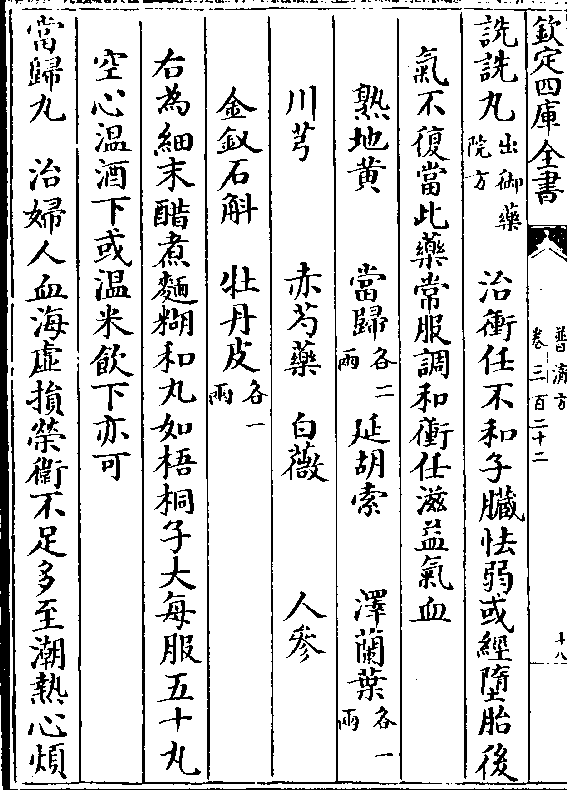 欽定四庫全書
普濟方
卷三百二十二
十八
詵詵丸出御藥院方 治衝任不和子臟怯弱或經墮胎後
氣不復當此藥常服調和衝任滋益氣血
熟地黄 當歸各二兩 延胡索 澤蘭葉各一兩
川芎 赤芍藥 白薇 人參
金釵石斛 牡丹皮各一兩
右為細末醋煮麵糊和丸如梧桐子大每服五十丸
空心温酒下或温米飲下亦可
當歸丸 治婦人血海虛損榮衛不足多至潮熱心煩